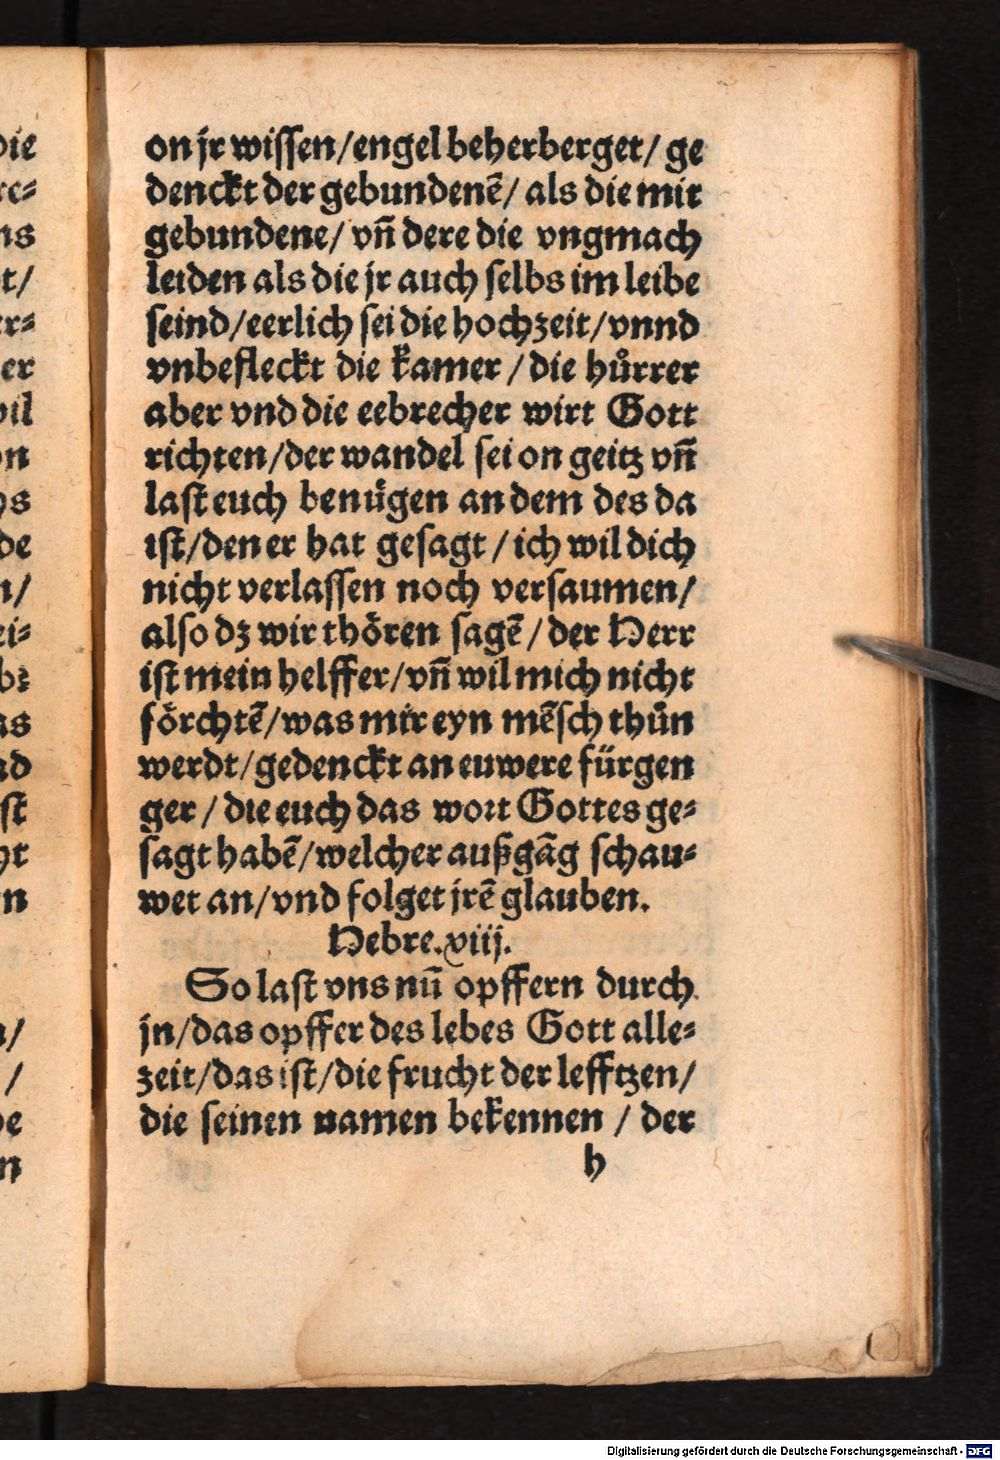 on jr wissen/engel beherberget/ ge
denckt der gebundenē/ als die mit
gebundene/ vn̄ dere die vngmach
leiden als die jr auch selbs im leibe
seind/eerlich sei die hochzeit/vnnd
vnbefleckt die kamer /die hůrrer
aber vnd die eebrecher wirt Gott
richten/der wandel sei on geitz vn̄
last euch benůgen an dem des da
ist/den er hat gesagt /ich wil dich
nicht verlassen noch versaumen/
also dz wir thören sagē /der Herr
ist mein helffer/vn̄ wil mich nicht
förchtē/was mir eyn mēsch thůn
werdt/gedenckt an euwere fürgen
ger / die euch das wort Gottes ge-
sagt habē/welcher außgāg schau-
wet an/vnd folget jrē glauben.
Hebre.viij.
So last vns nū opffern durch
jn/das opffer des lebes Gott alle-
zeit/das ist/die frucht der lefftzen/
die seinen namen bekennen / der
h
Digitalisierung gefördert durch die Deutsche Forschungsgemeinschaft - DFG